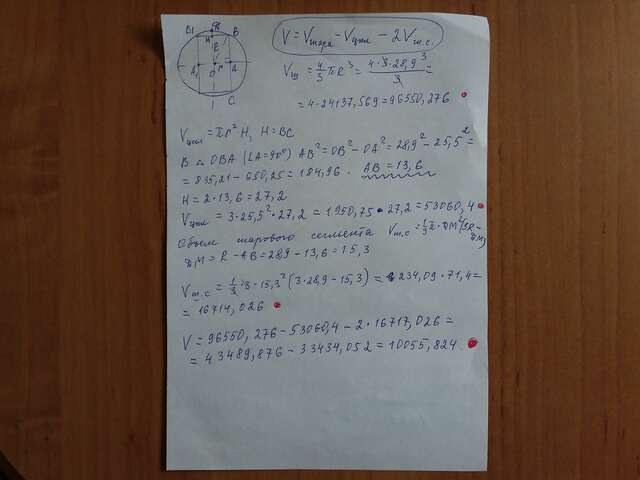 V = Vшара - Vцил - 2Vш.с.
B₁ M B
R
A₁ O r A
C
Vш = 4/3 πR³ = 4·3·28,9³/3 =
= 4·24137,569 = 96550,276
Vцил = πr² H, H = BC
В △ OBA (∠A=90°) AB² = OB² - OA² = 28,9² - 25,5² =
= 835,21 - 650,25 = 184,96. AB = 13,6
H = 2·13,6 = 27,2
Vцил = 3·25,5²·27,2 = 1950,75·27,2 = 53060,4
Объем шарового сегмента Vш.с = 1/3 π·DM²(3R-DM)
DM = R - AB = 28,9 - 13,6 = 15,3
Vш.с = 1/3·3·15,3²(3·28,9 - 15,3) = 234,09·71,4 =
= 16714,026
V = 96550,276 - 53060,4 - 2·16717,026 =
= 43489,876 - 33434,052 = 10055,824